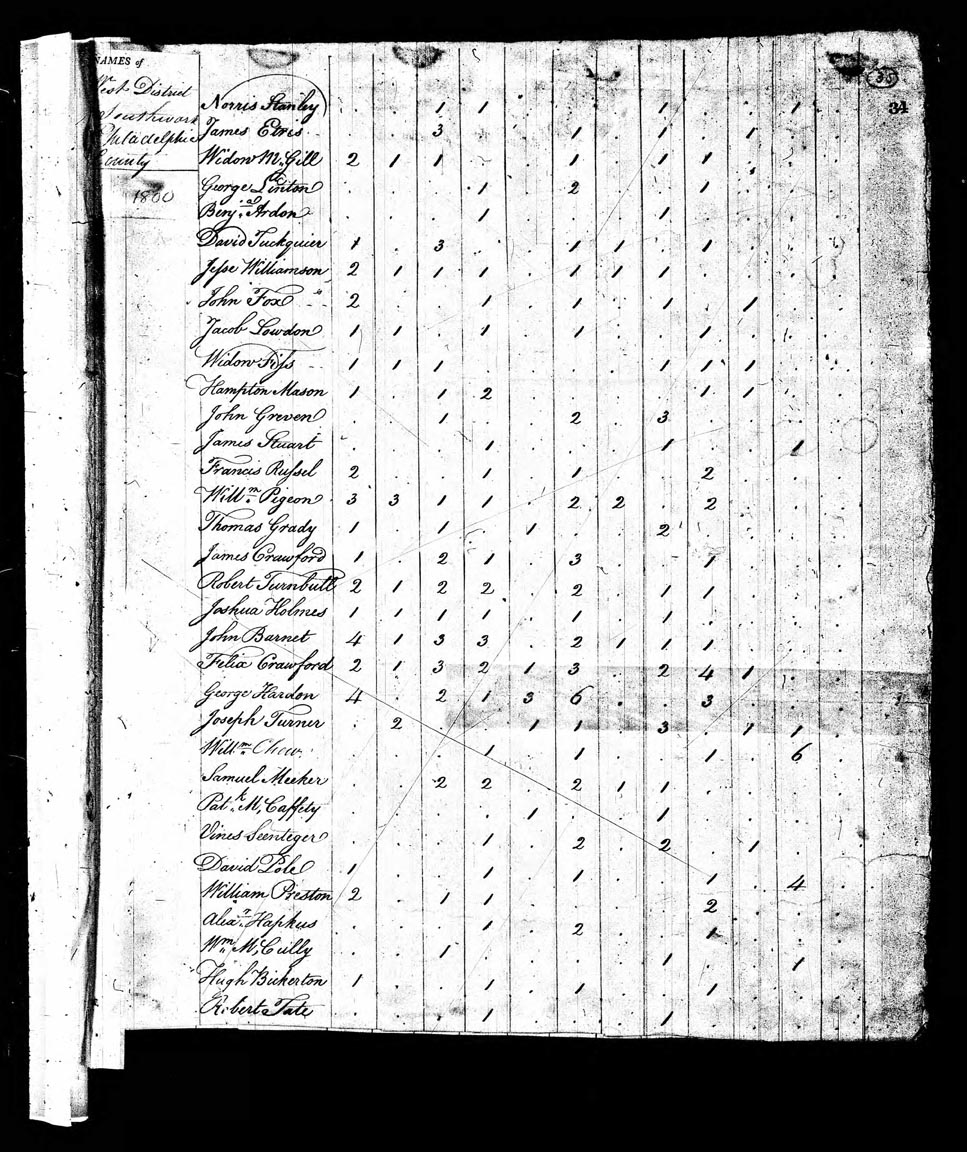 NAMES of
West District
Southwark
Philadelphia
County
1800
35
34
Norris Stanley . . 1 1 . . . 1 . . 1 .
James Elvis . . 3 . . 1 . 1 . 1 . .
Widow Mc.Gill 2 1 1 . . 1 . 1 1 . . .
George Linton . . . 1 . 2 . . 1 . . .
Benj. Ardon . . . 1 . . . 1 . . . .
David Tuckquier 1 . 3 . . 1 1 . 1 . . .
Jesse Williamson 2 1 1 1 . 1 1 1 . . . .
John Fox 2 . . 1 . 1 . 1 . 1 . .
Jacob Lowdon 1 1 . 1 . 1 . . 1 . . .
Widow Fiss 1 1 1 . . . . 1 1 1 . .
Hampton Mason 1 . 1 2 . . . . 1 1 . .
John Greven . . 1 . . 2 . 3 . . . .
James Stuart . . . 1 . . . 1 . . 1 .
Francis Russel 2 . . 1 . 1 . . 2 . . .
Willm. Pigeon 3 3 1 1 . 2 2 . 2 . . .
Thomas Grady 1 . 1 . 1 . . 2 . . . .
James Crawford 1 . 2 1 . 3 . . 1 . . .
Robert Turnbull 2 1 2 2 . 2 . 1 1 . . .
Joshua Holmes 1 1 1 1 . 1 . 1 . . . .
John Barnet 4 1 3 3 . 2 1 1 1 . . .
Felix Crawford 2 1 3 2 1 3 . 2 4 1 . .
George Hardon 4 . 2 1 3 6 . . 3 . . .
Joseph Turner . 2 . . 1 1 . 3 . 1 1 .
Willm. Chew . . . 1 . 1 . . 1 . 6 .
Samuel Meeker . . 2 2 . 2 1 1 . . . .
Patk. Mc.Caffety . . . . 1 . . 1 . . . .
Vines Seenteger . . . 1 . 2 . 2 . 1 . .
David Pole 1 . . 1 . 1 . . 1 . 4 .
William Preston 2 . 1 1 . . . . 2 . . .
Alexr. Hapkus . . . 1 . 2 . . 1 . . .
Wm. Mc.Cully . . 1 . . . . 1 . . 1 .
Hugh Bickerton 1 . . 1 . 1 . . 1 . . .
Robert Tate . . . 1 . . . 1 . . . .